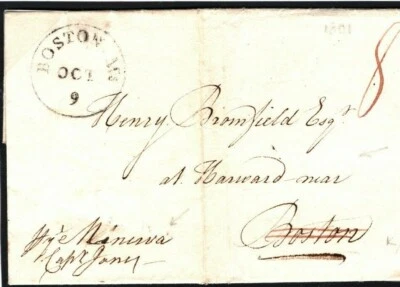 BOSTON Ms
OCT
9
8
Henry Bromfield Esqr.
at Harward near
Boston
pr ye Minerva
Capt Jones